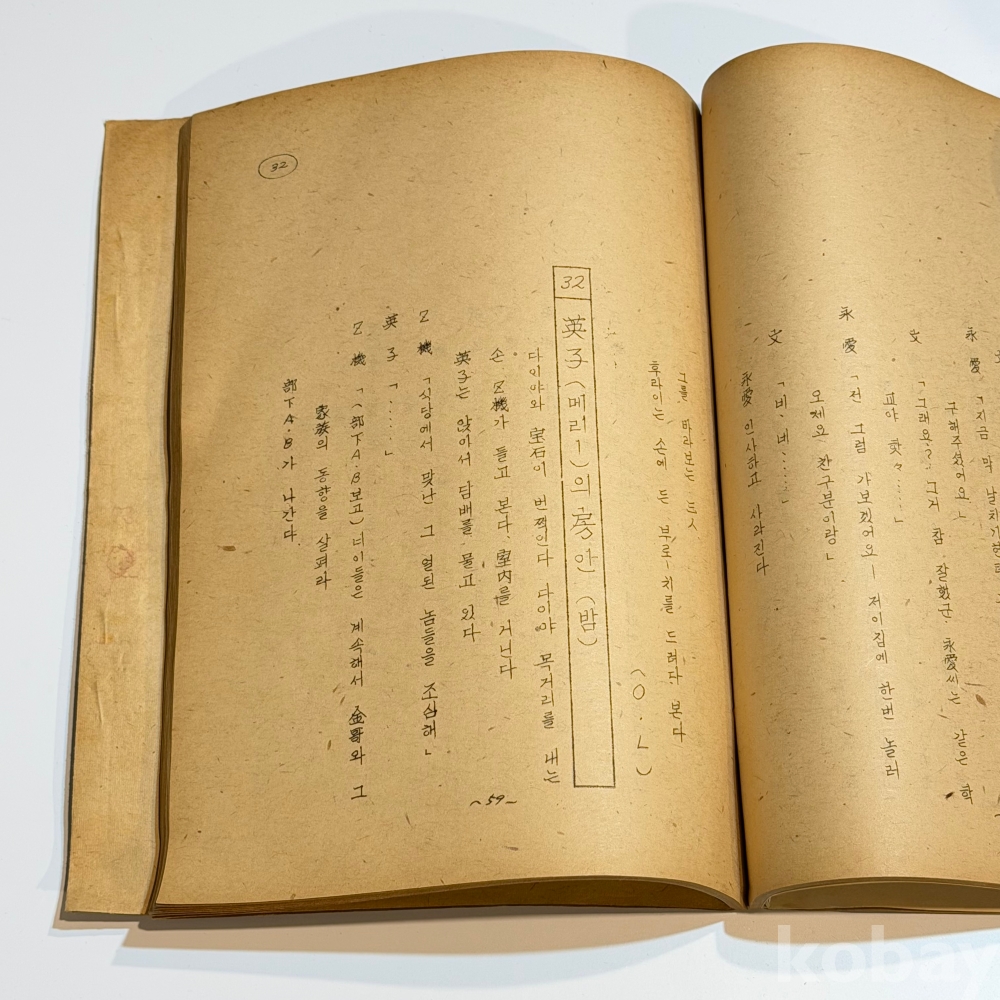 永愛 「지금 막
구해주셨어요」
文 「그래요? 그거 참 잘했군. 永愛씨는 같은 학
교야 핫々……」
永愛 「전 그럼 가보겠어요ー 저이집에 한번 놀러
오세요 찬구분이랑」
文 「비、비……」
永愛 인사하고 사라진다
그를 바라보는 三人
후라이는 손에 든 부로ー치를 드려다 본다
(O·L)
32 英子(메리1)의 房안 (밤)
다이야와 宝石이 번쩍인다 다이야 목거리를 내는
손、Z機가 들고 본다、室内를 거닌다
英子는 앉아서 담배를 물고 있다
Z機 「식당에서 맞난 그 얼된 놈들을 조심해」
英子 「……」
Z機 「(部下A·B보고) 너이들은 계속해서 金哥와 그
家族의 동향을 살펴라
部下A·B가 나간다
~59~
32
kobay